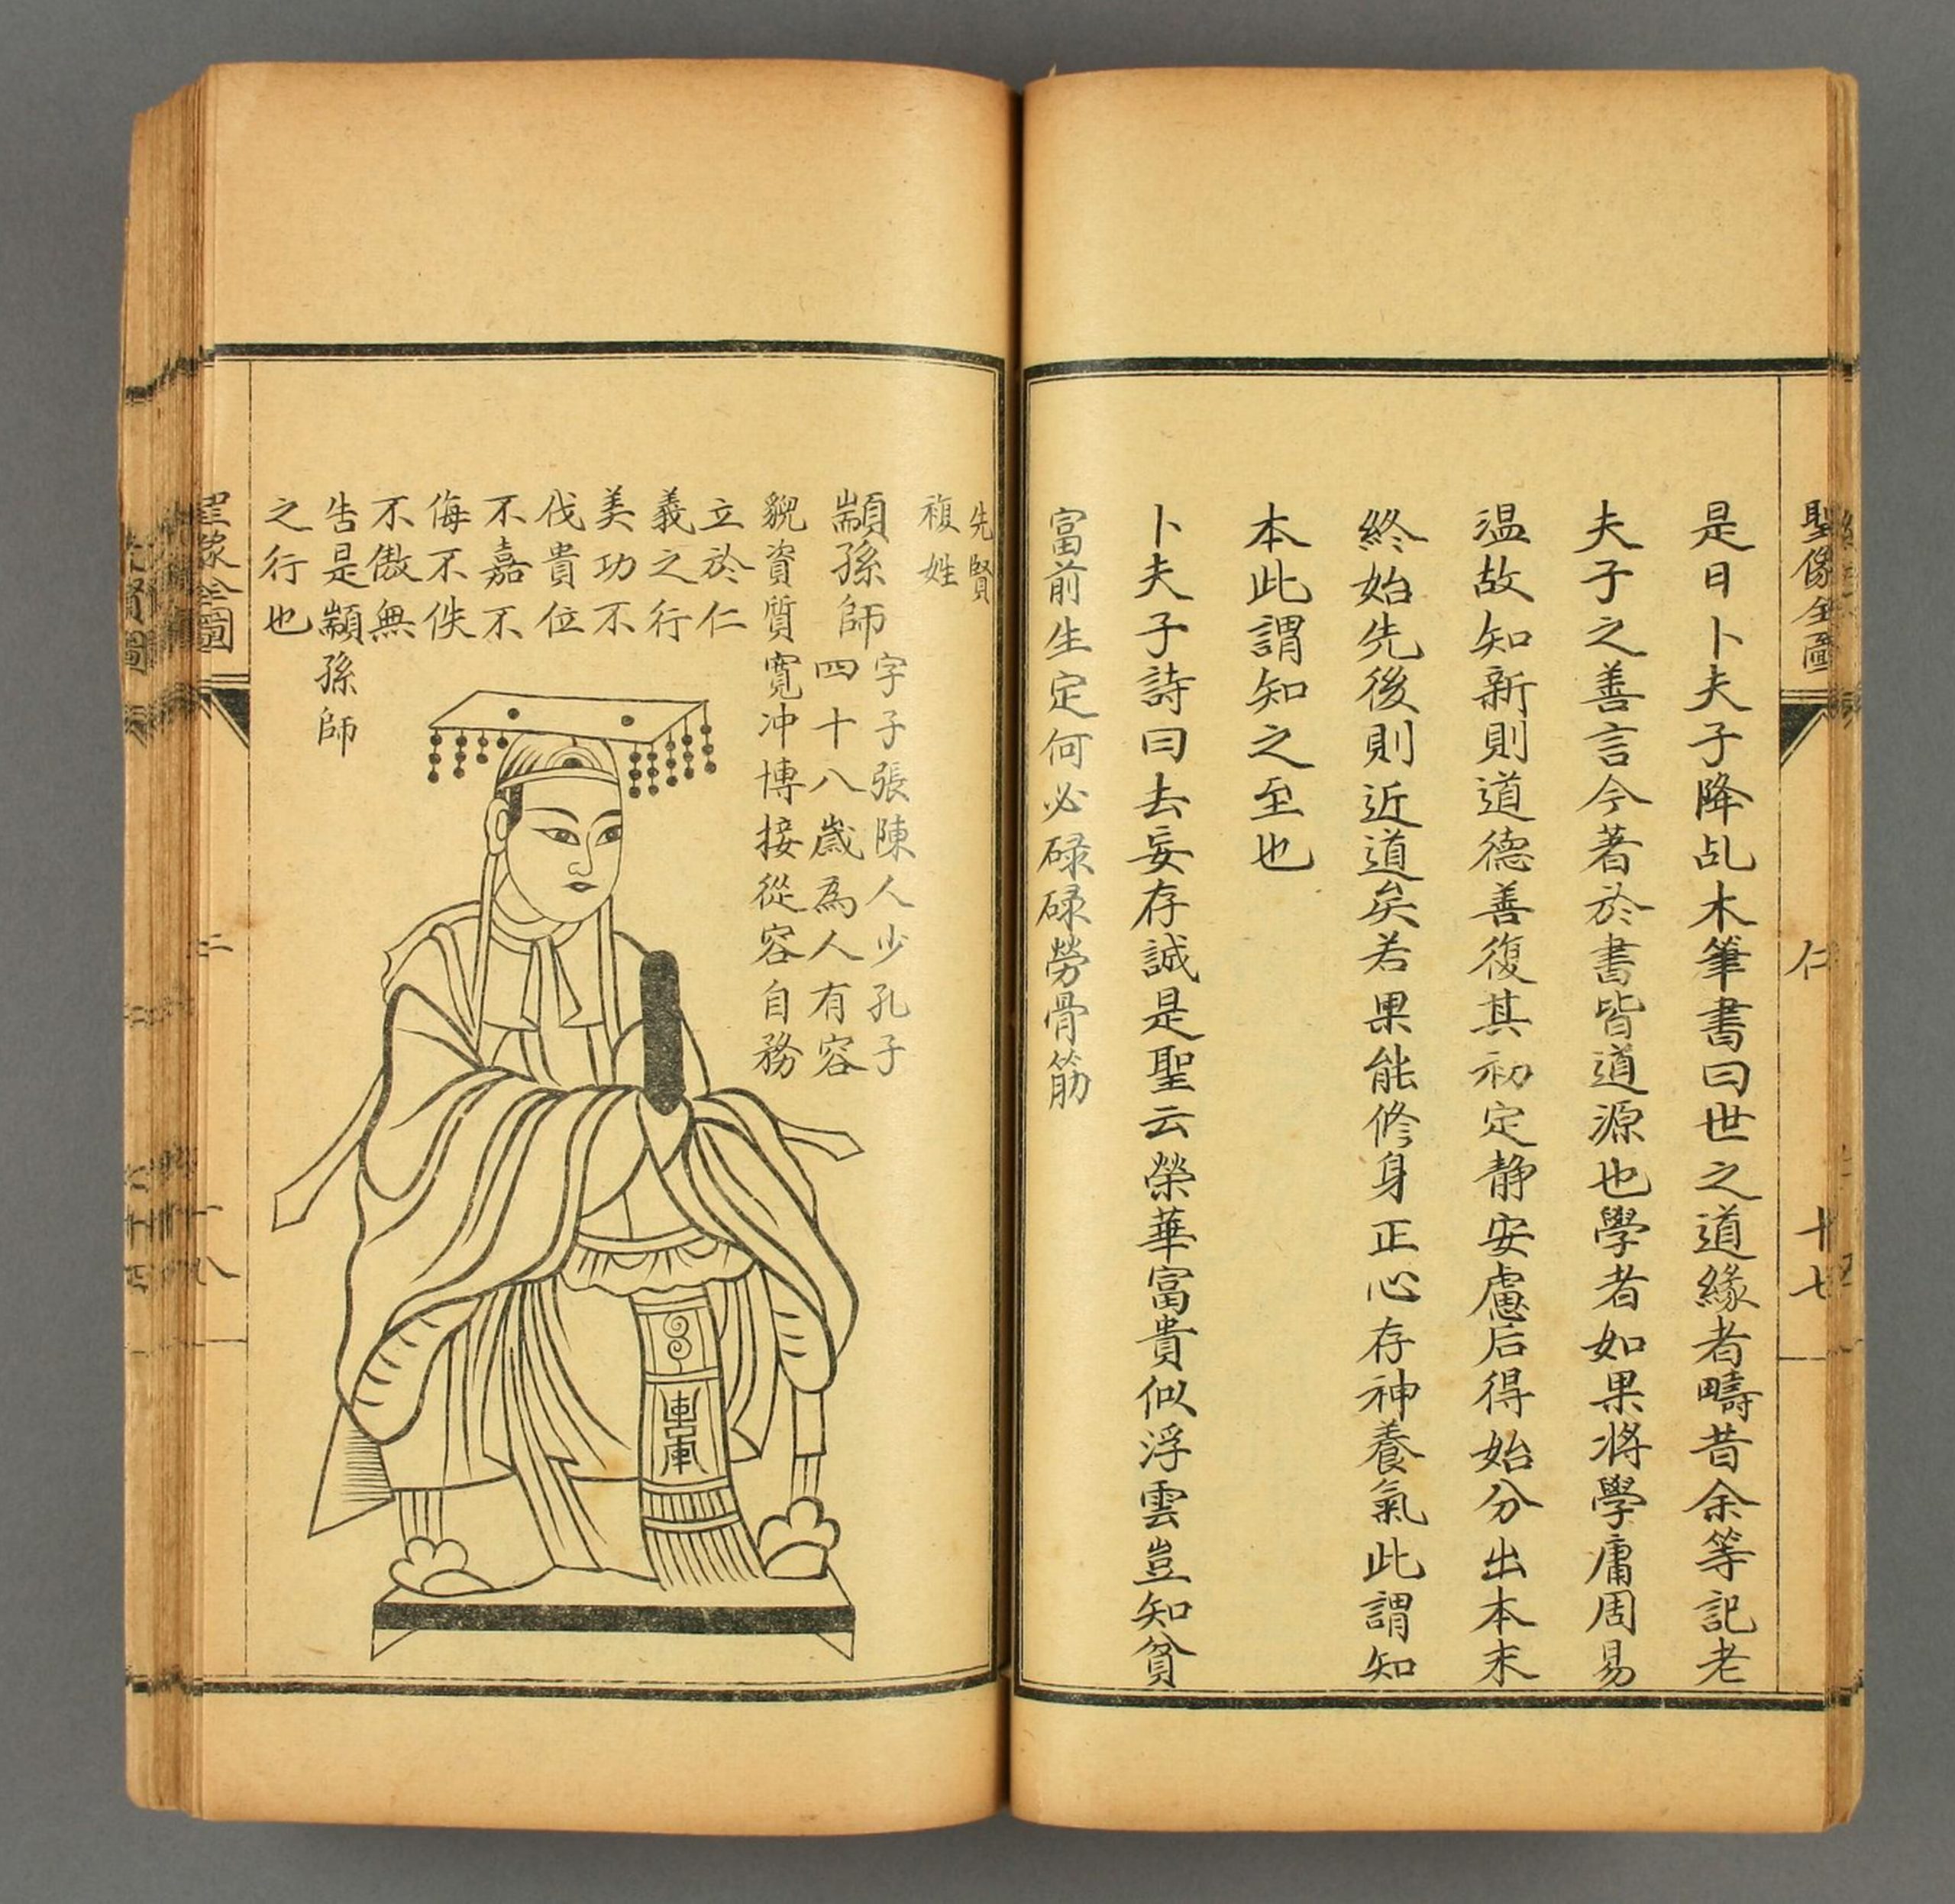 聖像全圖
仁
十七
是日卜夫子降乩木筆書曰世之道緣者疇昔余等記老
夫子之善言今著於書皆道源也學者如果将學庸周易
温故知新則道德善復其初定静安慮后得始分出本末
終始先後則近道矣若果能修身正心存神養氣此謂知
本此謂知之至也
卜夫子詩曰去妄存誠是聖云榮華富貴似浮雲豈知貧
富前生定何必碌碌勞骨筋
先賢
複姓
顓孫師
字子張陳人少孔子
四十八歲為人有容
貌資質寬冲博接從容自務
立於仁
義之行
美功不
伐貴位
不嘉不
侮不佚
不傲無
告是顓孫師
之行也
聖像全圖
十八